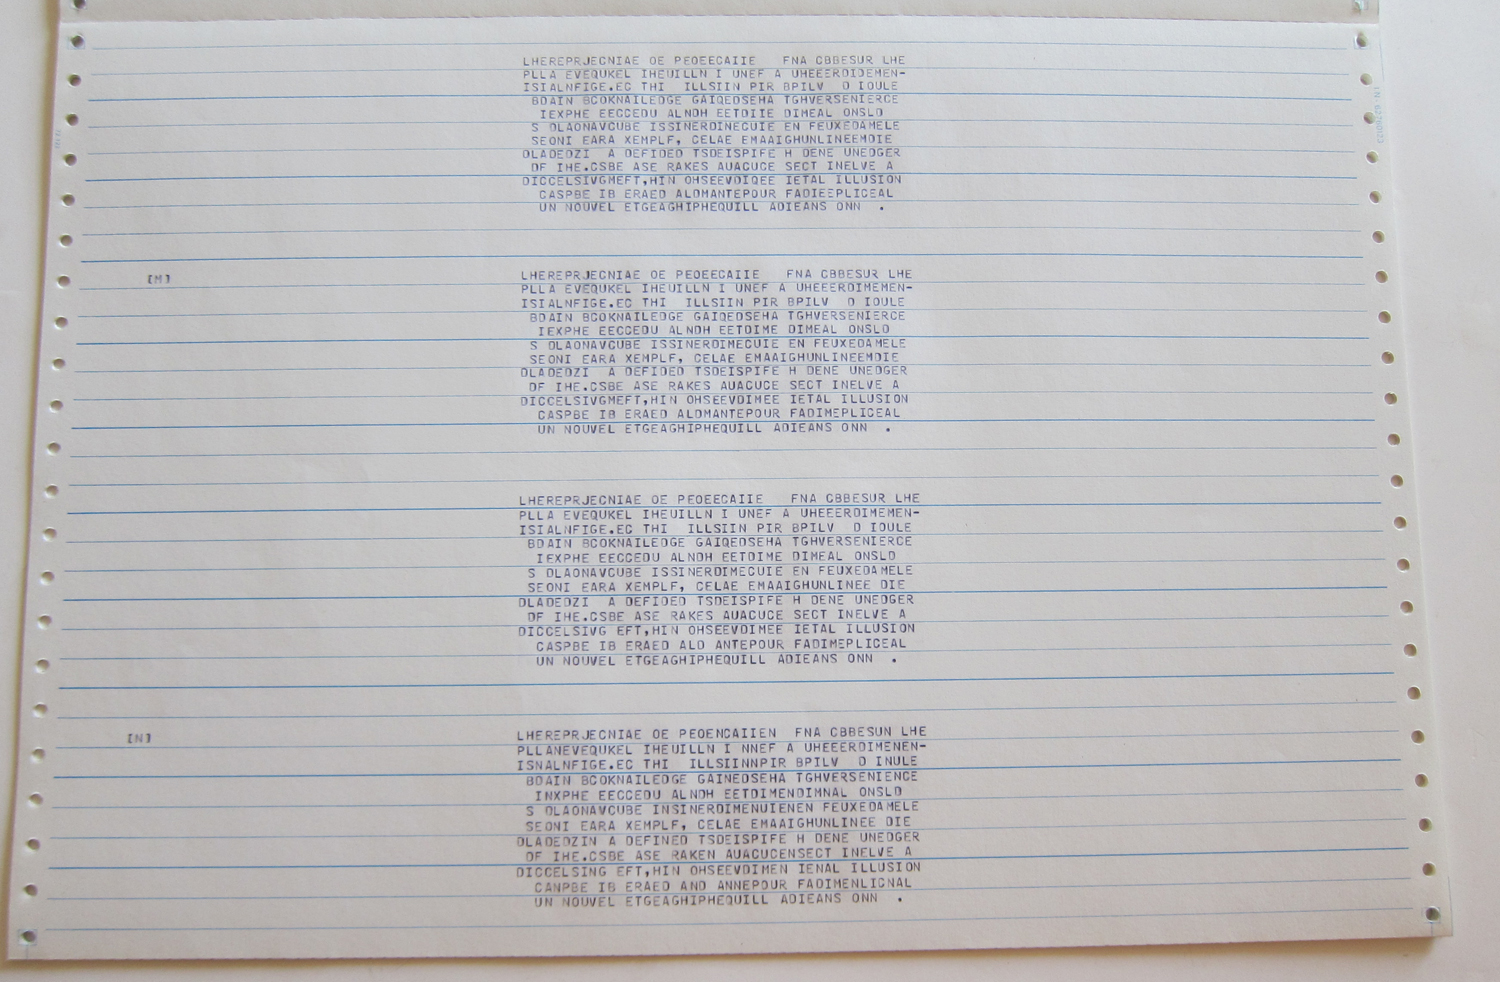 LHEREPRJECNIAE OE PEOEECAIIE   FNA CBBESUR LHE
PLLA EVEQUKEL IHEUILLN I UNEF A UHEEEROIDEMEN-
ISIALNFIGE.EC THI  ILLSIIN PIR BPILV  D IOULE
BDAIN BCOKNAILEDGE GAIQEDSEHA TGHVERSENIERCE
IEXPHE EECCEDU ALNDH EETDIIE DIMEAL ONSLD
S DLAONAVCUBE ISSINERDINECUIE EN FEUXEDAMELE
SEONI EARA XEMPLF, CELAE EMAAIGHUNLINEEMDIE
DLADEDZI  A DEFIDED TSDEISPIFE H DENE UNEDGER
DF IHE.CSBE ASE RAKES AUACUCE SECT INELVE A
DICCELSIVGMEFT,HIN OHSEEVDIQEE IETAL ILLUSION
CASPBE IB ERAED ALDMANTEPOUR FADIEEPLICEAL
UN NOUVEL ETGEAGHIPHEQUILL ADIEANS ONN  .
[M]
LHEREPRJECNIAE OE PEOEECAIIE   FNA CBBESUR LHE
PLLA EVEQUKEL IHEUILLN I UNEF A UHEEERDIMEMEN-
ISIALNFIGE.EC THI  ILLSIIN PIR BPILV  D IOULE
BDAIN BCOKNAILEDGE GAIQEDSEHA TGHVERSENIERCE
IEXPHE EECCEDU ALNDH EETDIME DIMEAL ONSLD
S DLAONAVCUBE ISSINERDIMECUIE EN FEUXEDAMELE
SEONI EARA XEMPLF, CELAE EMAAIGHUNLINEEMDIE
DLADEDZI  A DEFIDED TSDEISPIFE H DENE UNEDGER
DF IHE.CSBE ASE RAKES AUACUCE SECT INELVE A
DICCELSIVGMEFT,HIN OHSEEVDIMEE IETAL ILLUSION
CASPBE IB ERAED ALDMANTEPOUR FADIMEPLICEAL
UN NOUVEL ETGEAGHIPHEQUILL ADIEANS ONN  .
LHEREPRJECNIAE OE PEOEECAIIE   FNA CBBESUR LHE
PLLA EVEQUKEL IHEUILLN I UNEF A UHEEERDIMEMEN-
ISIALNFIGE.EC THI  ILLSIIN PIR BPILV  D IOULE
BDAIN BCOKNAILEDGE GAIQEDSEHA TGHVERSENIERCE
IEXPHE EECCEDU ALNDH EETDIME DIMEAL ONSLD
S DLAONAVCUBE ISSINERDIMECUIE EN FEUXEDAMELE
SEONI EARA XEMPLF, CELAE EMAAIGHUNLINEE DIE
DLADEDZI  A DEFIDED TSDEISPIFE H DENE UNEDGER
DF IHE.CSBE ASE RAKES AUACUCE SECT INELVE A
DICCELSIVG EFT,HIN OHSEEVDIMEE IETAL ILLUSION
CASPBE IB ERAED ALD ANTEPOUR FADIMEPLICEAL
UN NOUVEL ETGEAGHIPHEQUILL ADIEANS ONN  .
[N]
LHEREPRJECNIAE OE PEOENCAIIEN  FNA CBBESUN LHE
PLLANEVEQUKEL IHEUILLN I NNEF A UHEEERDIMENEN-
ISNALNFIGE.EC THI  ILLSIINNPIR BPILV  D INULE
BDAIN BCOKNAILEDGE GAINEDSEHA TGHVERSENIENCE
INXPHE EECCEDU ALNDH EETDIMENDIMNAL ONSLD
S DLAONAVCUBE INSINERDIMENUIENEN FEUXEDAMELE
SEONI EARA XEMPLF, CELAE EMAAIGHUNLINEE DIE
DLADEDZIN A DEFINED TSDEISPIFE H DENE UNEDGER
DF IHE.CSBE ASE RAKEN AUACUCENSECT INELVE A
DICCELSING EFT,HIN OHSEEVDIMEN IENAL ILLUSION
CANPBE IB ERAED AND ANNEPOUR FADIMENLICNAL
UN NOUVEL ETGEAGHIPHEQUILL ADIEANS ONN  .